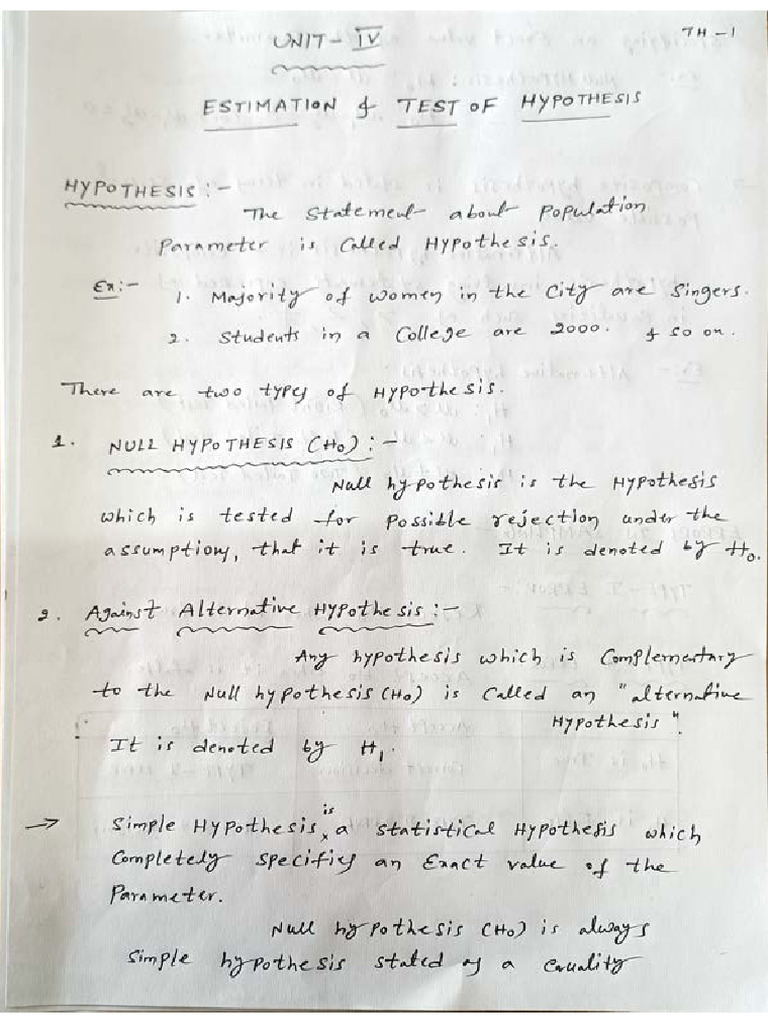 TH-1
UNIT-IV
ESTIMATION & TEST OF HYPOTHESIS
HYPOTHESIS:-
The Statement about Population
Parameter is Called Hypothesis.
Ex:- 1. Majority of women in the City are Singers.
2. Students in a College are 2000. & so on.
There are two types of Hypothesis.
1. NULL HYPOTHESIS (H₀):-
Null hypothesis is the Hypothesis
which is tested for Possible rejection under the
assumption, that it is true. It is denoted by H₀.
2. Against Alternative Hypothesis:-
Any hypothesis which is Complementary
to the Null hypothesis (H₀) is Called an "alternative
Hypothesis".
It is denoted by H₁.
→ Simple Hypothesis is a Statistical Hypothesis which
Completely Specifies an Exact value of the
Parameter.
Null hypothesis (H₀) is always
Simple hypothesis stated as a Equality